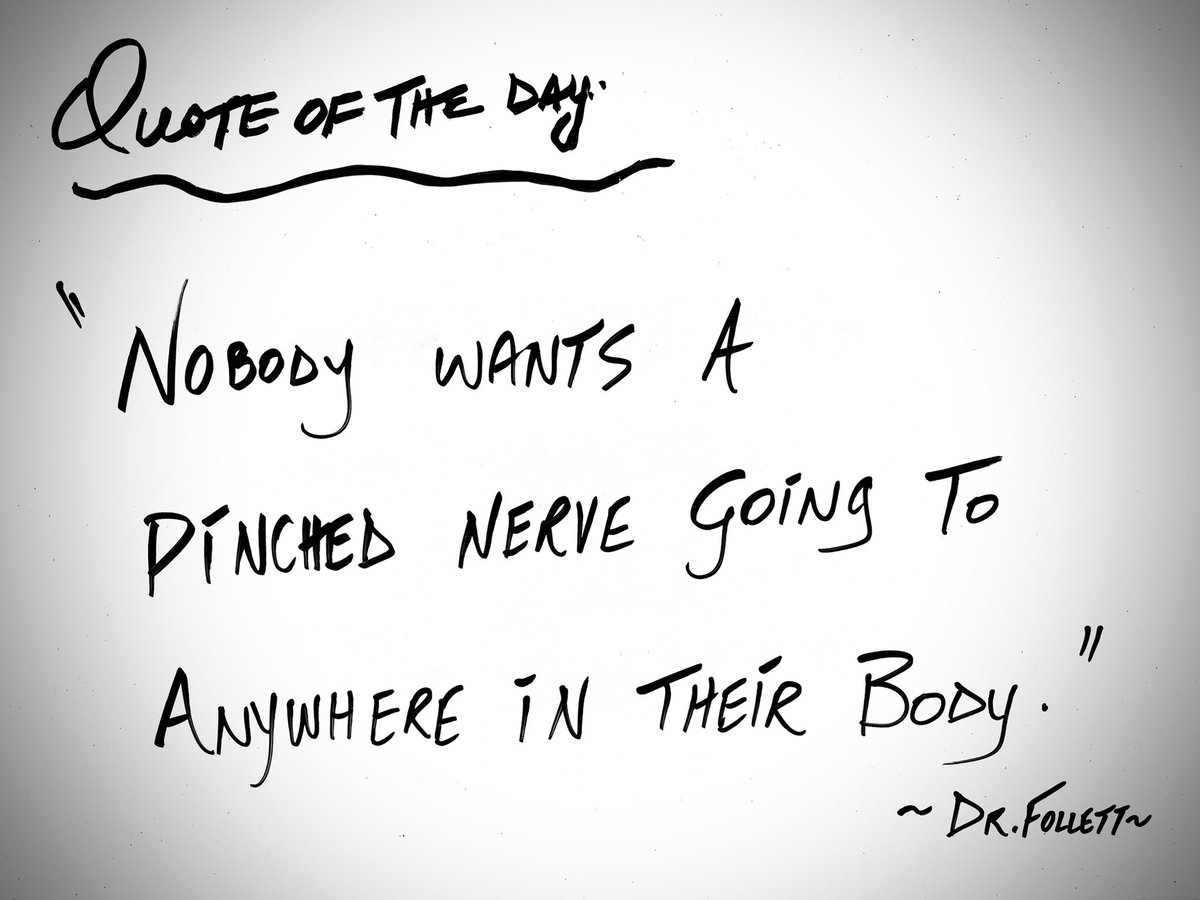 QUOTE OF THE DAY:
"NOBODY WANTS A
PiNCHED NERVE GOiNG TO
ANYWHERE iN THEiR BODY."
~ DR. FOLLETT ~